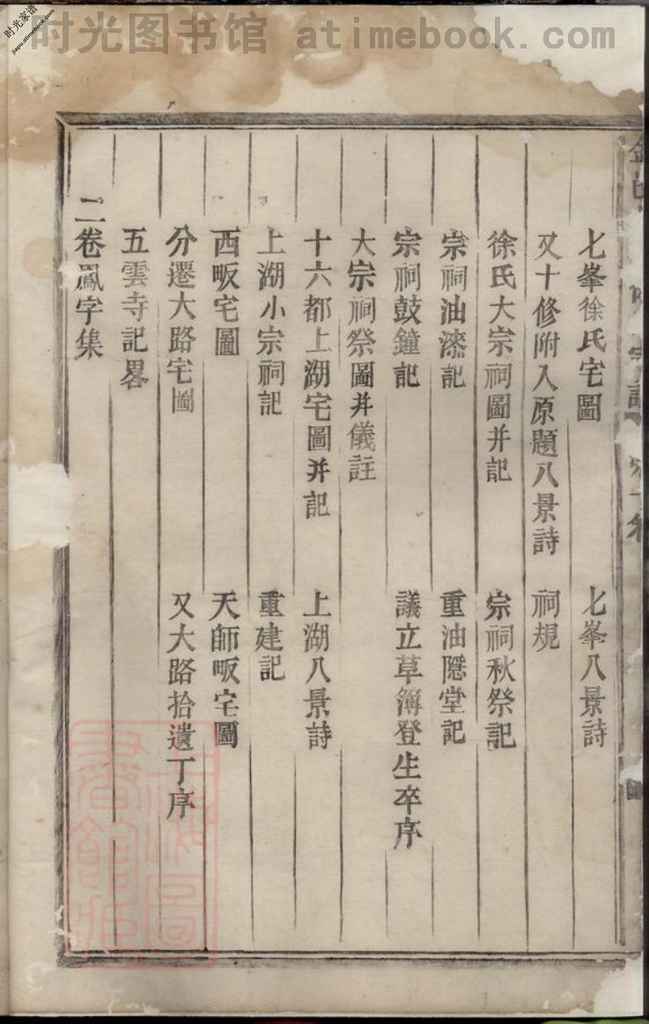 时光图书馆 atimebook.com
时光家谱
jiapu.atimebook.com
七峯徐氏宅圖 七峯八景詩
又十修附入原題八景詩 祠規
徐氏大宗祠圖并記 宗祠秋祭記
宗祠油漆記 重油隱堂記
宗祠鼓鐘記 議立草簿登生卒序
大宗祠祭圖并儀註
十六都上湖宅圖并記 上湖八景詩
上湖小宗祠記 重建記
西畈宅圖 天師畈宅圖
分遷大路宅圖 又大路拾遺丁序
五雲寺記畧
二卷鳳字集